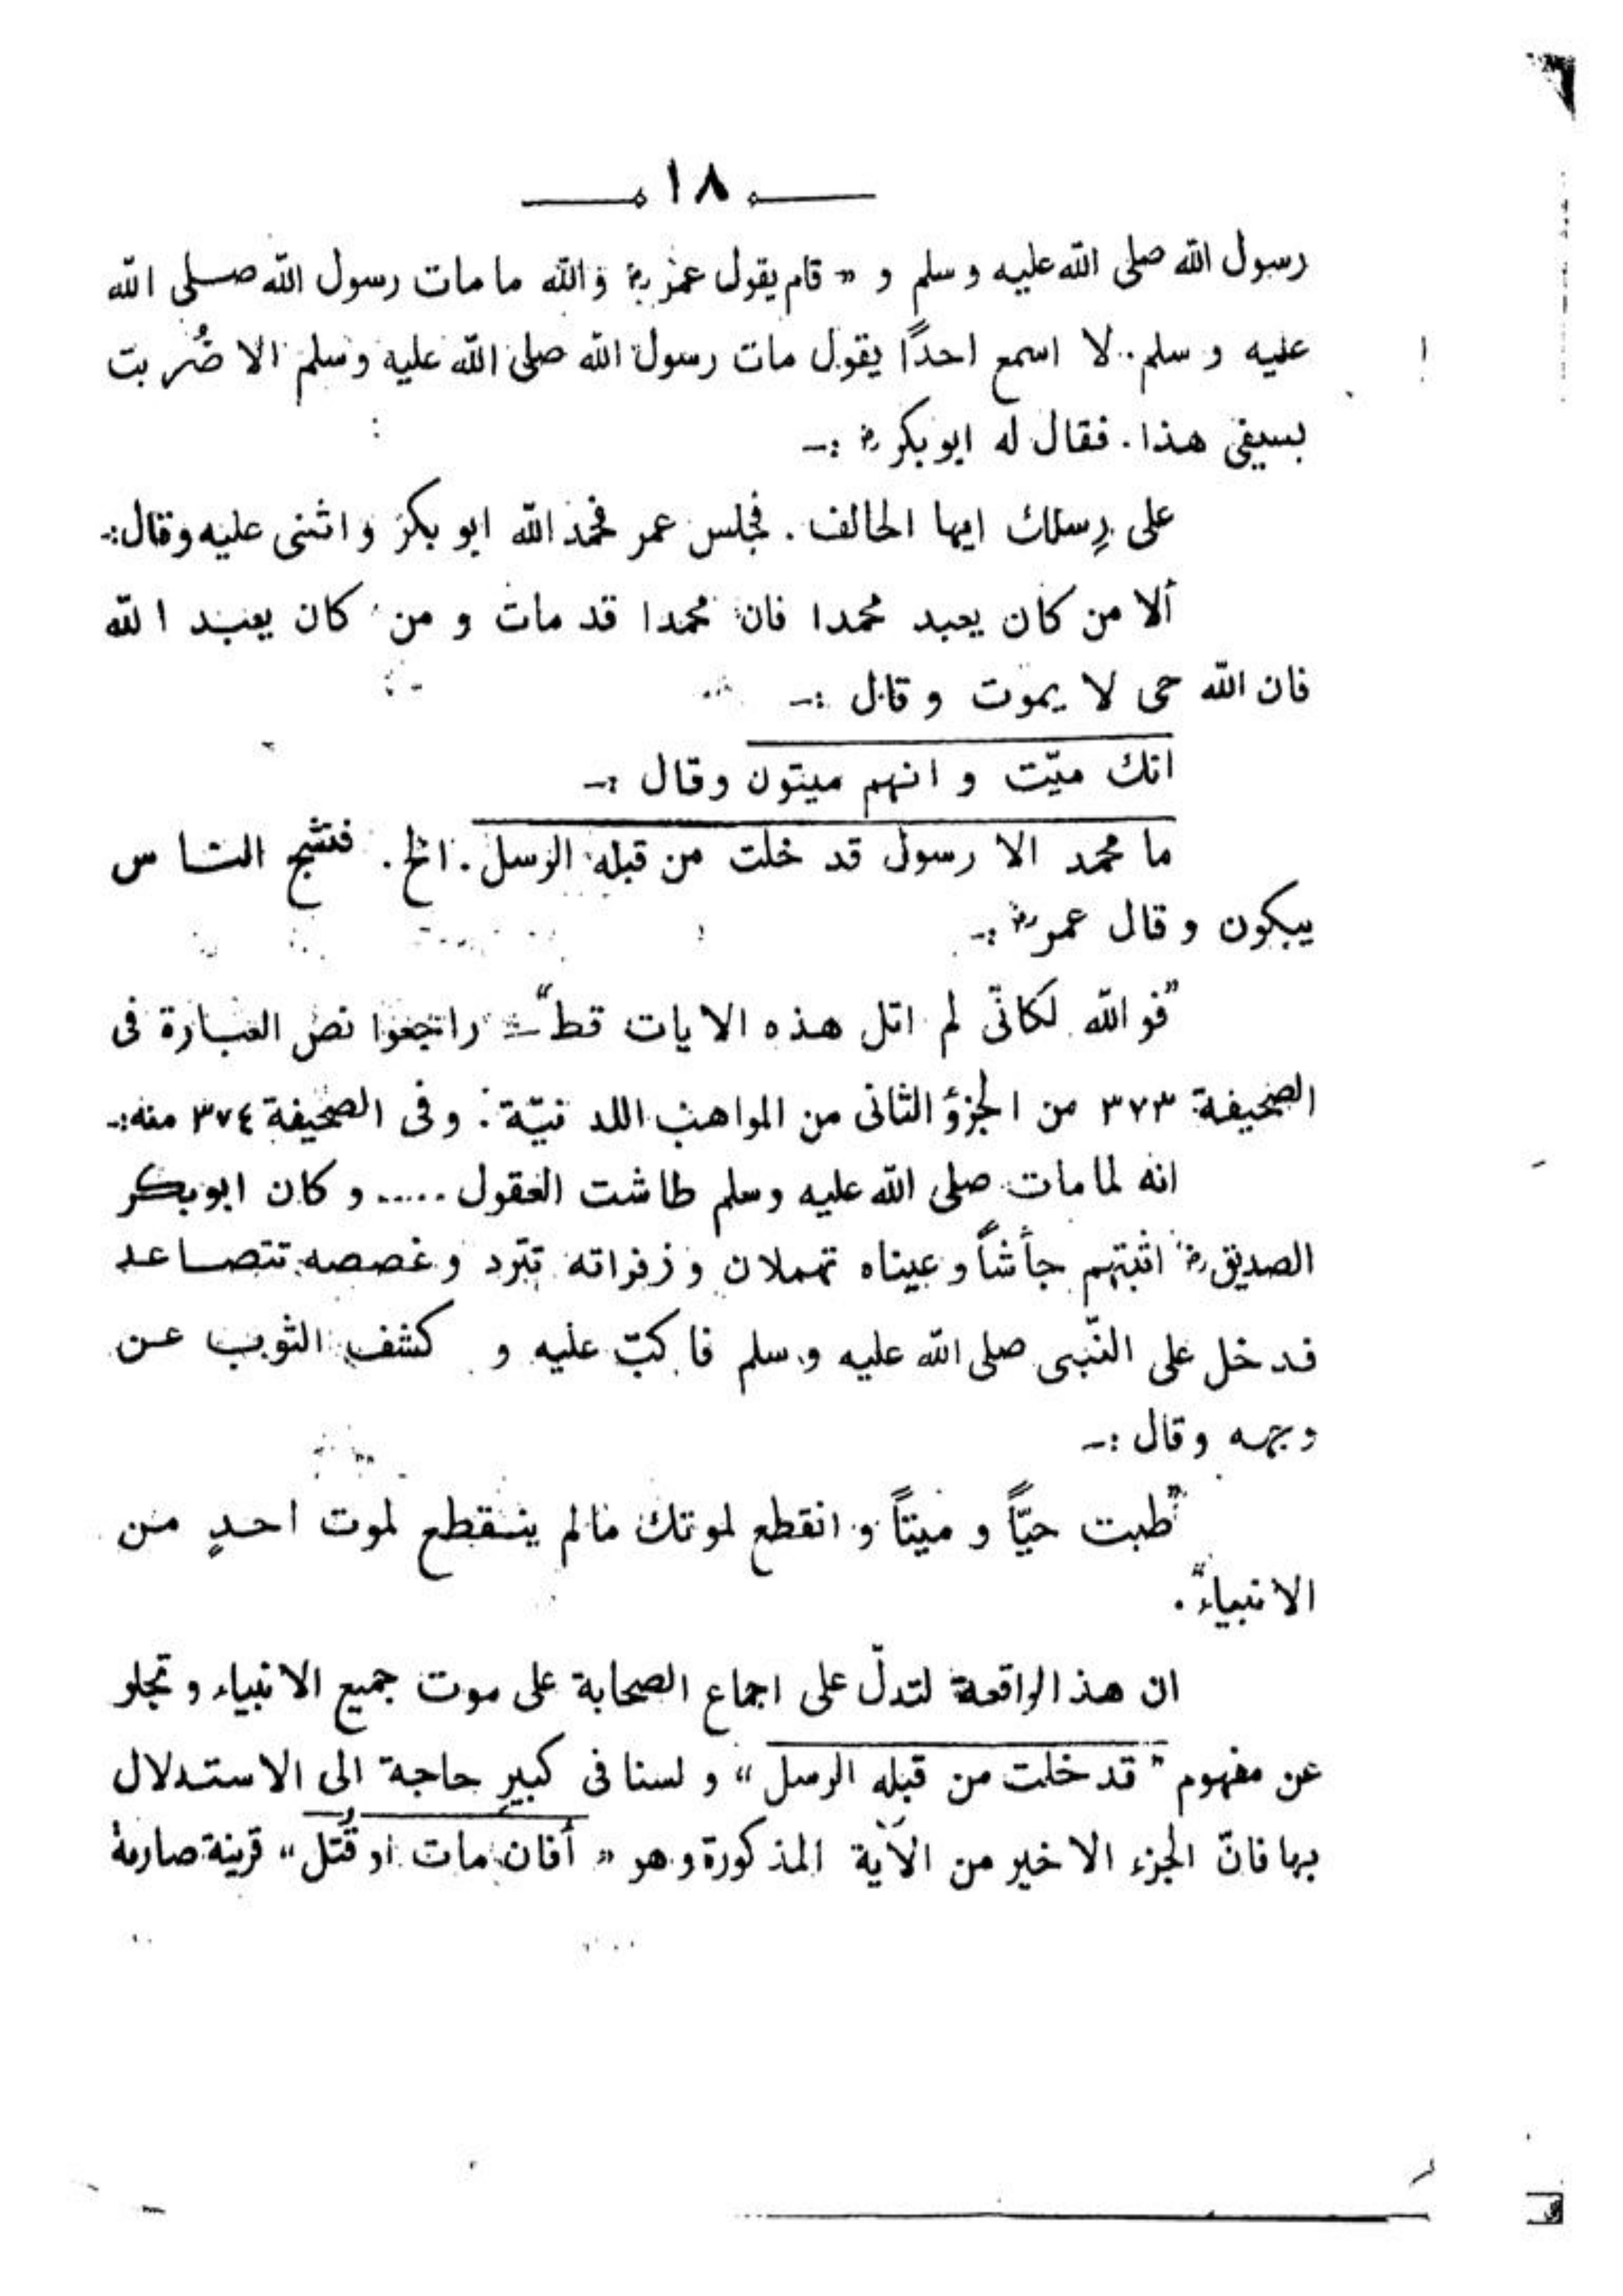 ١٨
رسول الله صلى الله عليه وسلم و « قام يقول عمرؓ والله ما مات رسول الله صلى الله
عليه و سلم. لا اسمع احداً يقول مات رسول الله صلى الله عليه وسلم الا ضُربت
بسيفى هذا. فقال له ابو بكرؓ :-
على رِسلك ايها الحالف. فجلس عمر فحمد الله ابو بكر و اثنى عليه وقال:-
ألا من كان يعبد محمدا فان محمدا قد مات و من كان يعبد الله
فان الله حى لا يموت و قال :-
انك ميّت و انهم ميتون وقال :-
ما محمد الا رسول قد خلت من قبله الرسل. الخ. فنشج الناس
يبكون و قال عمرؓ :-
”فو الله لكانّى لم اتل هذه الايات قط“ راجعوا نص العبارة فى
الصحيفة ٣٧٣ من الجزؤ الثانى من المواهب اللد نيّة. وفى الصحيفة ٣٧٤ منه:-
انه لما مات صلى الله عليه وسلم طاشت العقول ..... و كان ابو بكر
الصديقؓ اثبتهم جأشاً و عيناه تهملان و زفراته تتّرد و غصصه تتصاعد
فدخل على النّبى صلى الله عليه و سلم فاكبّ عليه و كشف الثوب عن
وجهه وقال :-
”طبت حيّاً و ميتاً و انقطع لموتك مالم ينقطع لموت احدٍ من
الانبياء“.
ان هذ الواقعة لتدلّ على اجماع الصحابة على موت جميع الانبياء و تجلو
عن مفهوم ” قد خلت من قبله الرسل “ و لسنا فى كبيرِ حاجة الى الاستدلال
بها فانّ الجزء الاخير من الآية المذكورة و هو « أفان مات او قُتل “ قرينة صارمة